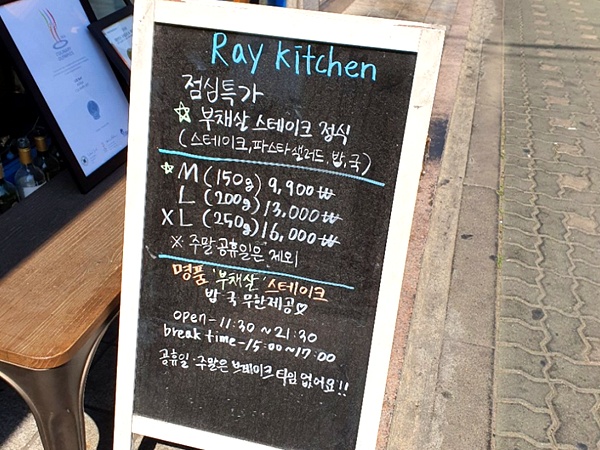 Ray Kitchen
점심특가
☆ 부채살 스테이크 정식
(스테이크, 파스타샐러드, 밥, 국)
☆ M (150g) 9,900₩
L (200g) 13,000₩
XL (250g) 16,000₩
※ 주말 공휴일은 제외
명품 '부채살' 스테이크
밥 국 무한제공♡
open - 11:30 ~ 21:30
break time - 15:00 ~ 17:00
공휴일·주말은 브레이크 타임 없어요!!